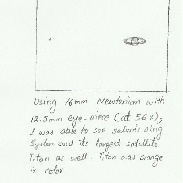 Using 76mm Newtonian with
12.5mm eye-piece (at 56X),
I was able to see saturns ring
System and its largest satellite
Titan as well. Titan was orange
in color